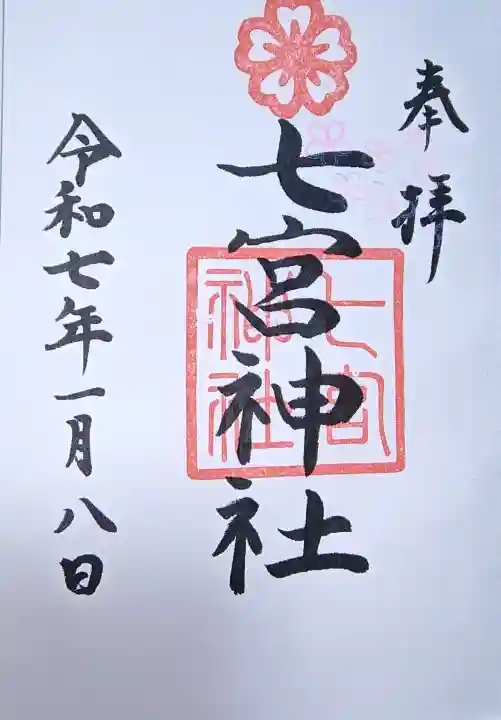 奉拝
七宮神社
七宮
神社
令和七年一月八日